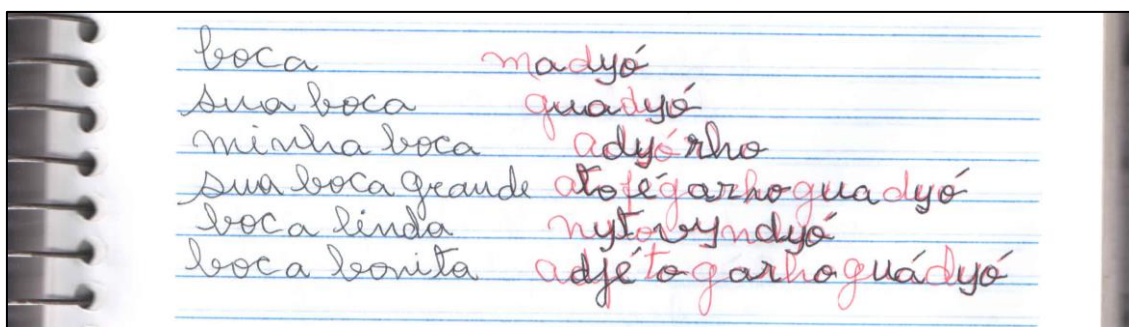 boca madyó
sua boca guadyó
minha boca adyórho
sua boca grande atofégarhoguadyó
boca linda nytovyndyó
boca bonita adjétogarhoguádyó